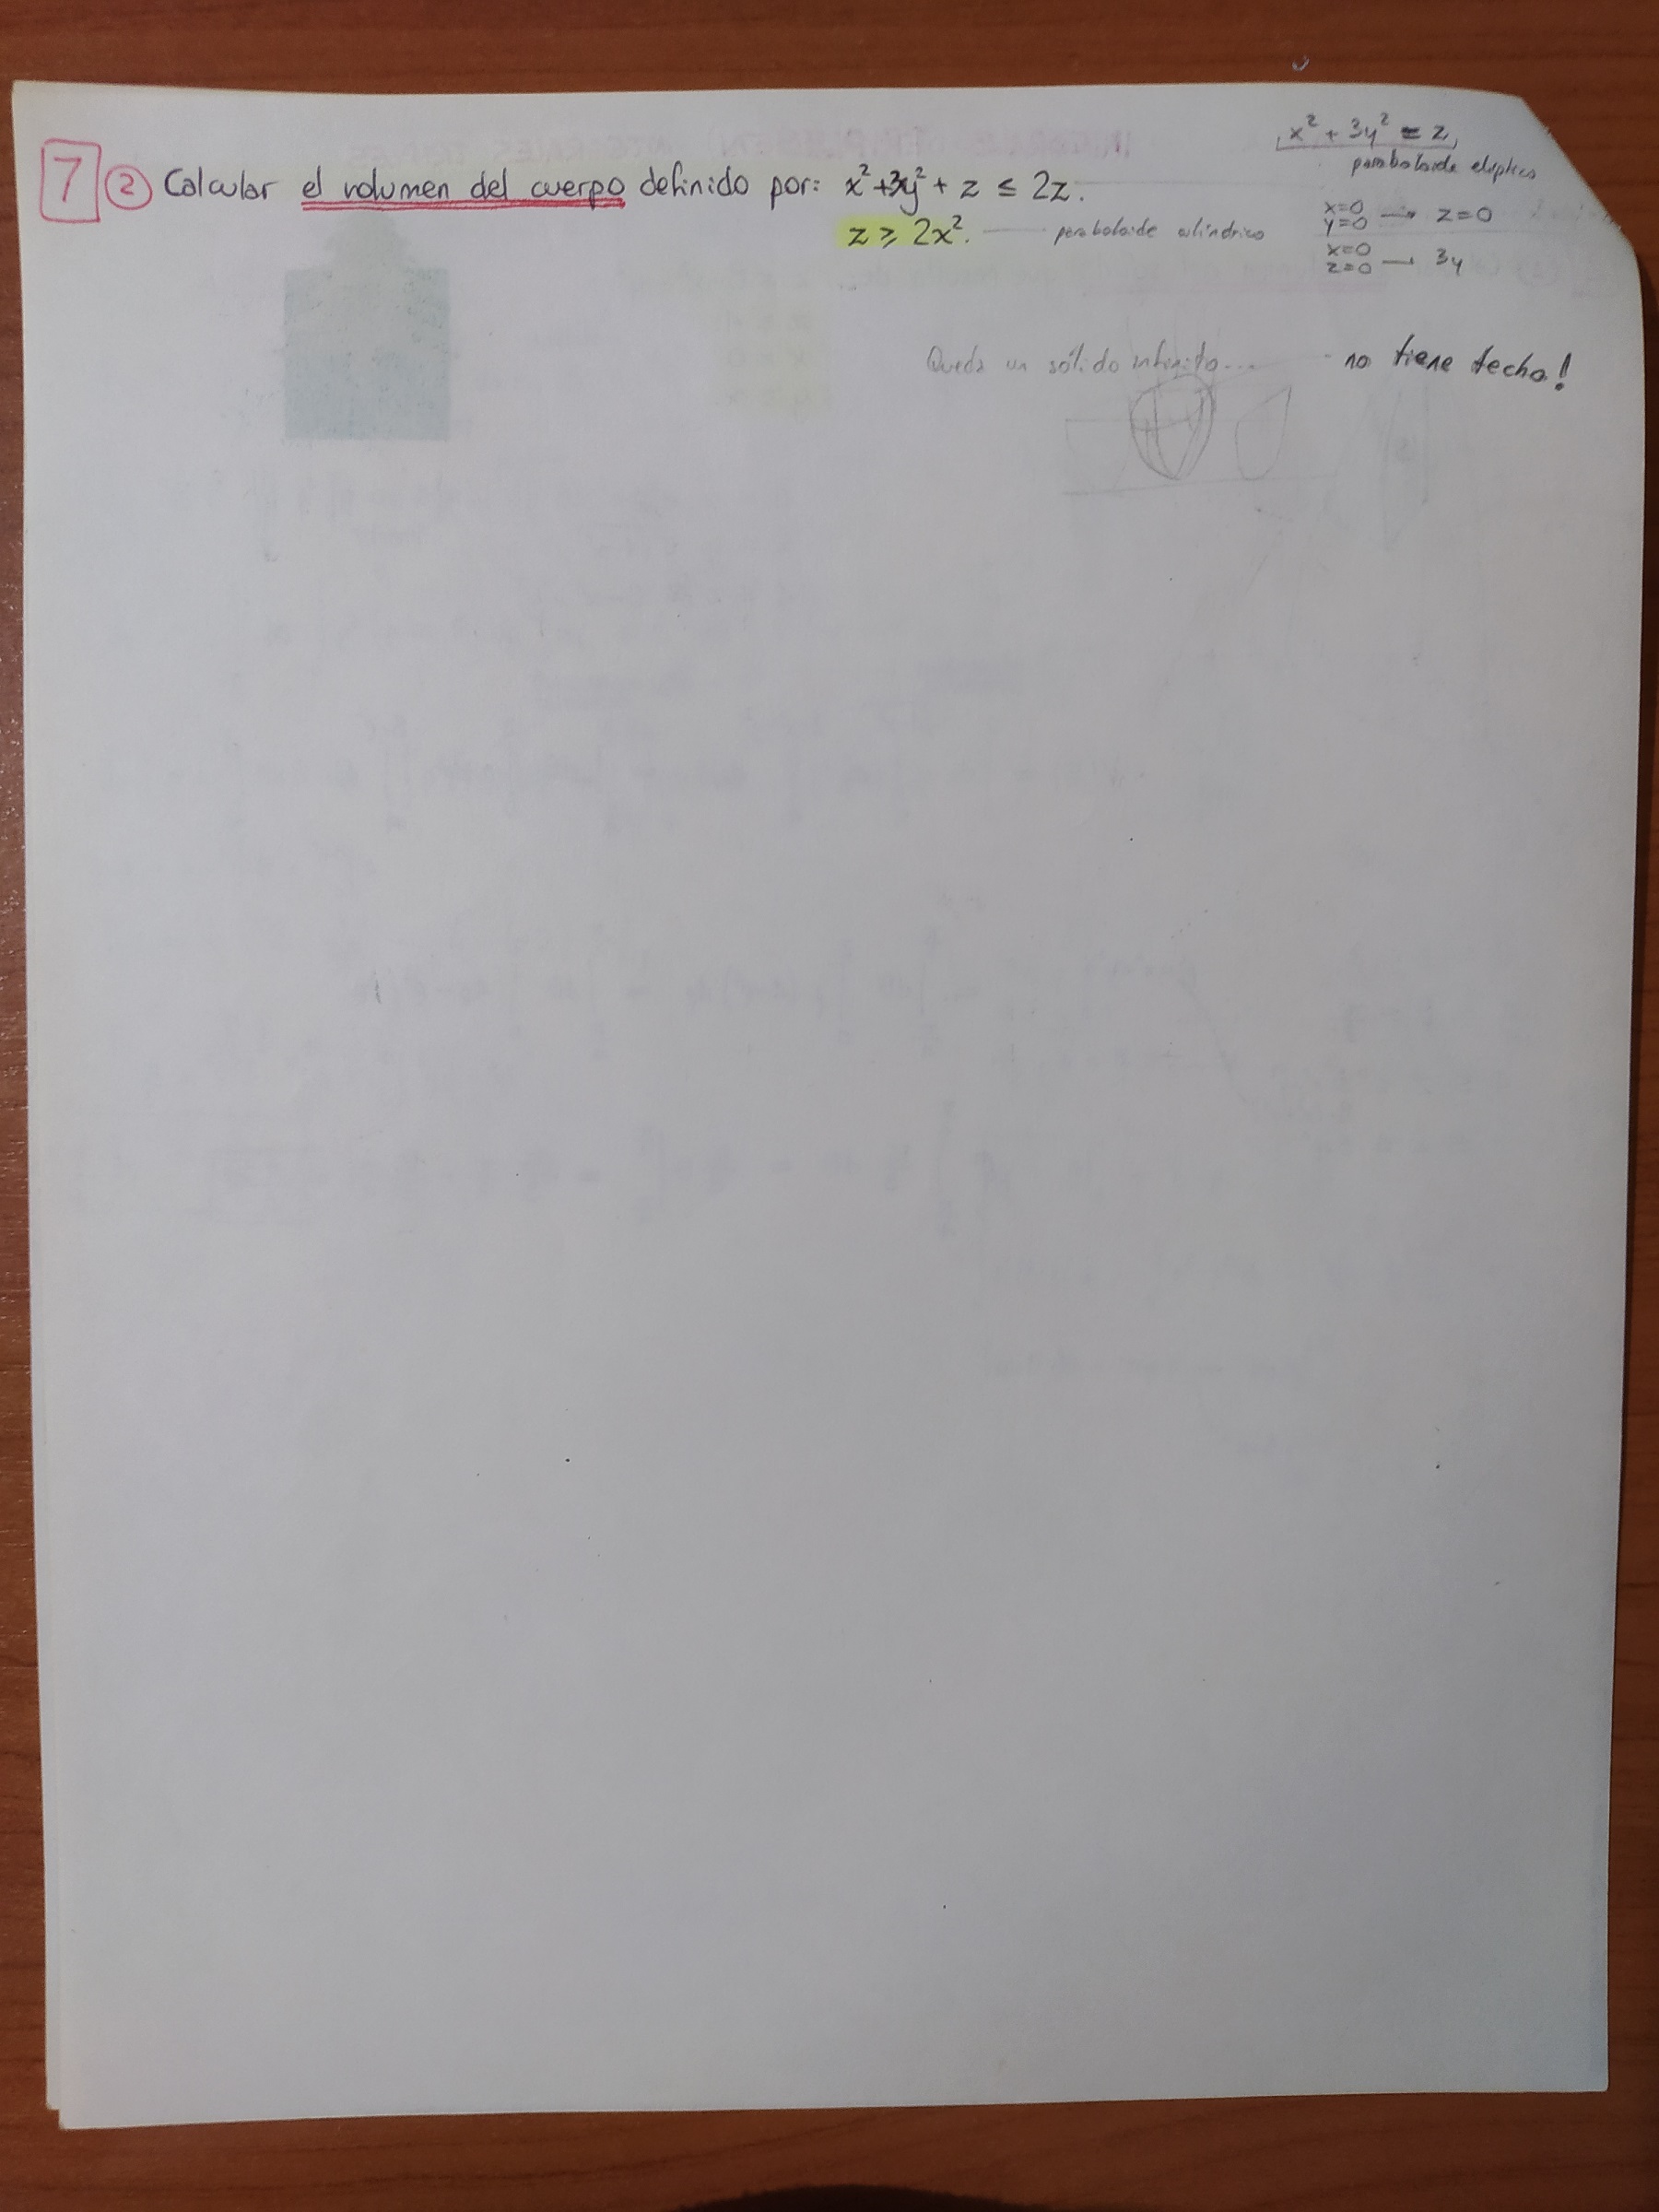 7 ② Calcular el volumen del cuerpo definido por: x²+3y²+ z ≤ 2z.
z ≥ 2x². paraboloide cilíndrico
x² + 3y² = z
paraboloide elíptico
x=0
y=0 → z=0
x=0
z=0 → 3y
Queda un sólido infinito... no tiene techo!